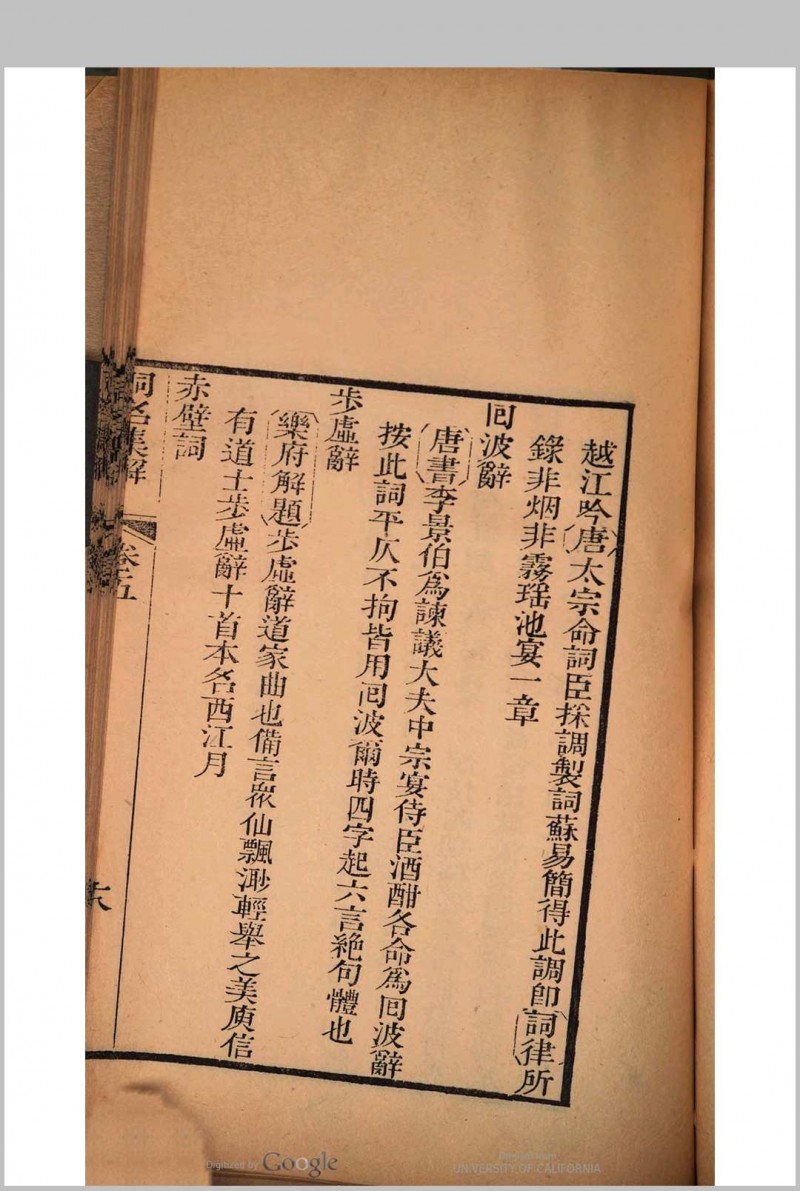 越江吟唐太宗命詞臣採調製詞蘇易簡得此調卽詞律所
錄非烟非霧瑶池宴一章
囘波辭
唐書李景伯爲諫議大夫中宗宴侍臣酒酣各命爲囘波辭
按此詞平仄不拘皆用囘波爾時四字起六言絶句體也
步虛辭
樂府解題步虛辭道家曲也備言衆仙飄渺輕舉之美庾信
有道士步虛辭十首本名西江月
赤壁詞
詞名集解
卷五
Digitized by Google
UNIVERSITY OF CALIFORNIA